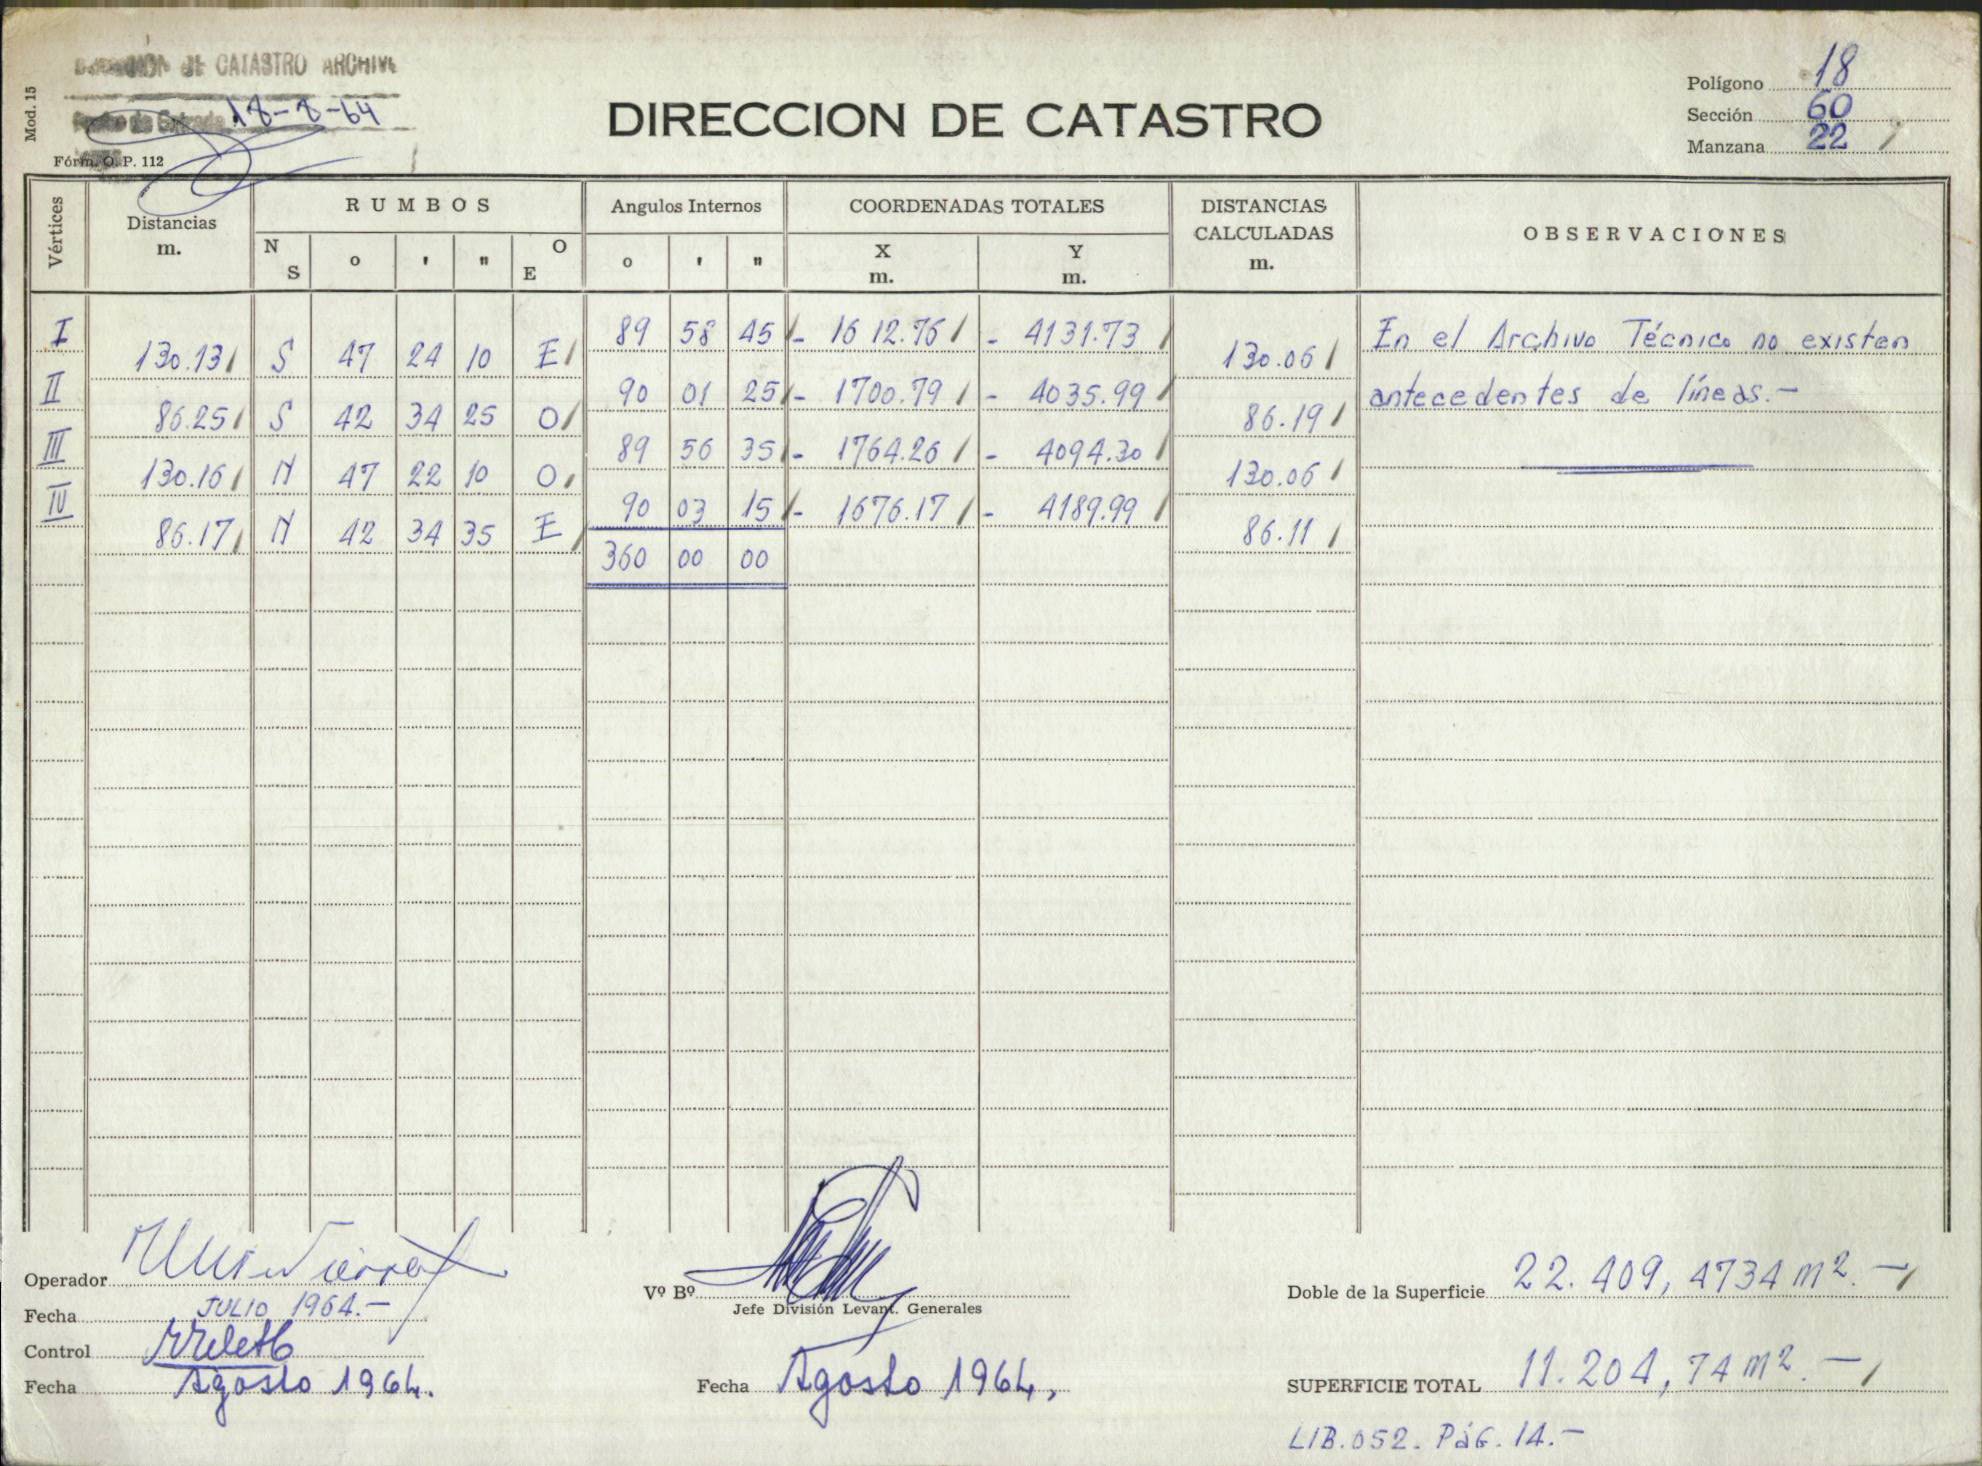 DIRECCIÓN DE CATASTRO ARCHIVO
Mod. 15
18-8-64
Fórm. O. P. 112
DIRECCION DE CATASTRO
Polígono 18
Sección 60
Manzana 22
Vértices Distancias m. RUMBOS N S o ' " O E Angulos Internos o ' " COORDENADAS TOTALES X m. Y m. DISTANCIAS CALCULADAS m. OBSERVACIONES
I 89 58 45 - 1612.76 - 4131.73 En el Archivo Técnico no existen
130.13 S 47 24 10 E 130.06
II 90 01 25 - 1700.79 - 4035.99 antecedentes de líneas.-
86.25 S 42 34 25 O 86.19
III 89 56 35 - 1764.26 - 4094.30
130.16 N 47 22 10 O 130.06
IV 90 03 15 - 1676.17 - 4189.99
86.17 N 42 34 35 E 86.11
360 00 00
Operador
Fecha JULIO 1964.-
Control
Fecha Agosto 1964.
Vº Bº
Jefe División Levant. Generales
Fecha Agosto 1964,
Doble de la Superficie 22.409,4734 m2.-
SUPERFICIE TOTAL 11.204,74 m2.-
LIB.052. PáG. 14.-